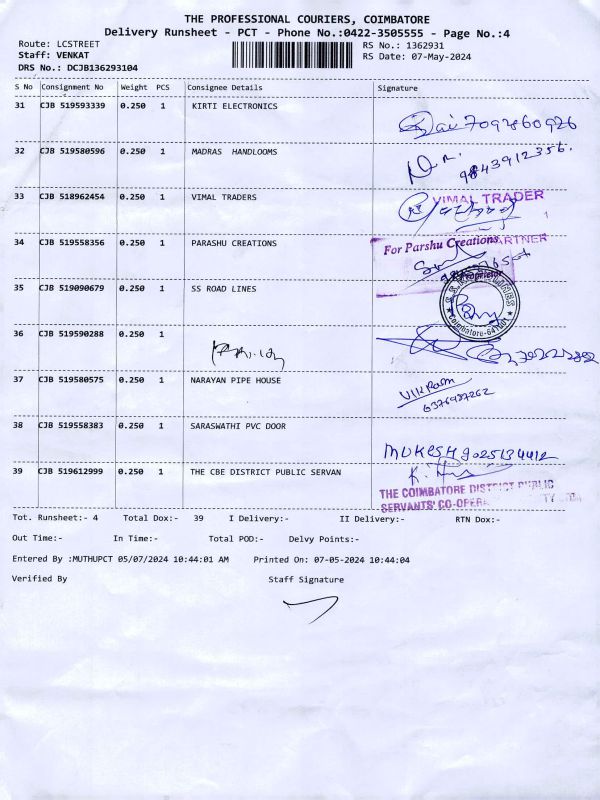 THE PROFESSIONAL COURIERS, COIMBATORE
Delivery Runsheet - PCT - Phone No.:0422-3505555 - Page No.:4
Route: LCSTREET RS No.: 1362931
Staff: VENKAT RS Date: 07-May-2024
DRS No.: DCJB136293104
S No Consignment No Weight PCS Consignee Details Signature
31 CJB 519593339 0.250 1 KIRTI ELECTRONICS
32 CJB 519580596 0.250 1 MADRAS HANDLOOMS
9843912356.
33 CJB 518962454 0.250 1 VIMAL TRADERS VIMAL TRADER
34 CJB 519558356 0.250 1 PARASHU CREATIONS For Parshu Creations PARTNER
Proprietor
35 CJB 519090679 0.250 1 SS ROAD LINES
36 CJB 519590288 0.250 1
37 CJB 519580575 0.250 1 NARAYAN PIPE HOUSE VIKRAM
6376937262
38 CJB 519558383 0.250 1 SARASWATHI PVC DOOR
MUKESH 9025134412
39 CJB 519612999 0.250 1 THE CBE DISTRICT PUBLIC SERVAN
THE COIMBATORE DISTRICT PUBLIC
SERVANTS' CO-OPERA
Tot. Runsheet:- 4 Total Dox:- 39 I Delivery:- II Delivery:- RTN Dox:-
Out Time:- In Time:- Total POD:- Delvy Points:-
Entered By :MUTHUPCT 05/07/2024 10:44:01 AM Printed On: 07-05-2024 10:44:04
Verified By Staff Signature